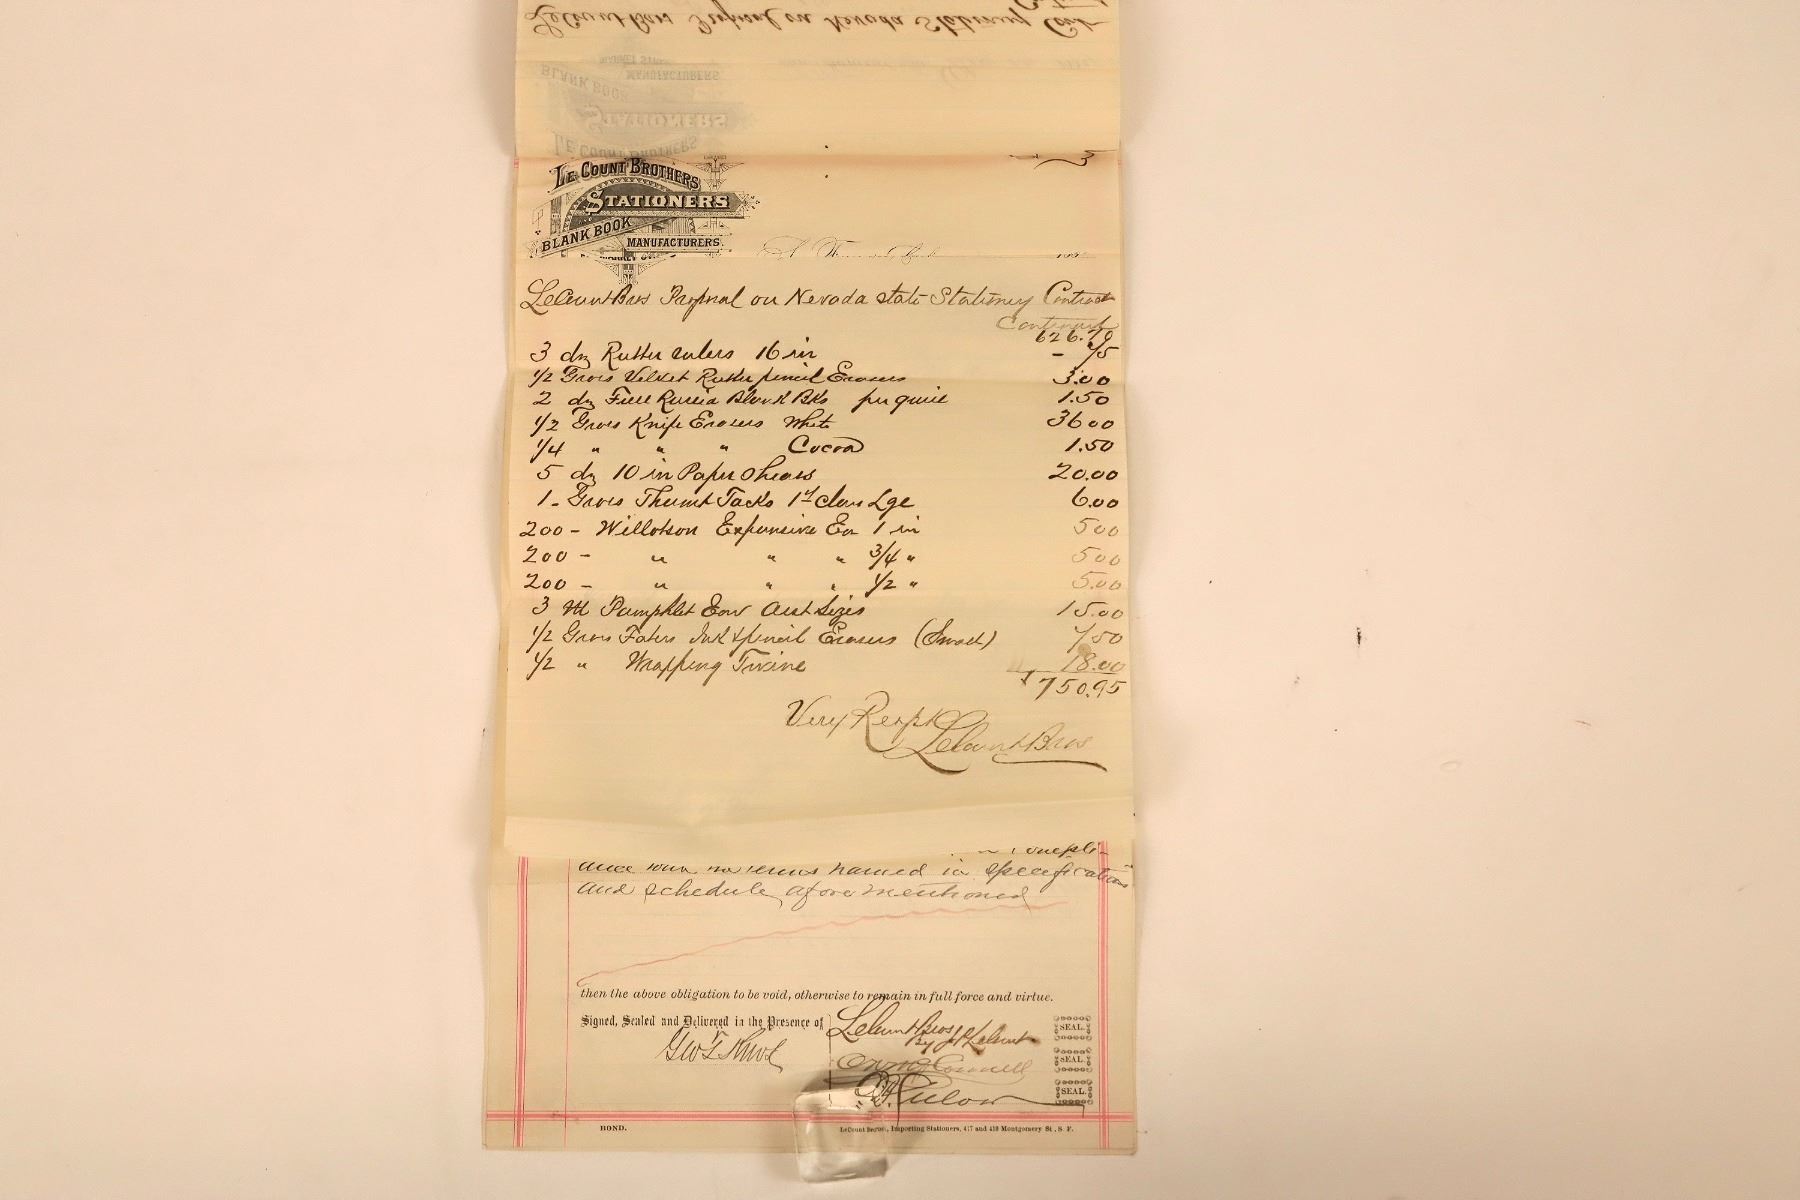 LeCount Bros Proposal on Nevada Stationery Cont
MARKET ST
MANUFACTURERS
BLANK BOOK
STATIONERS
LE COUNT BROTHERS
3
LE COUNT BROTHERS
STATIONERS
BLANK BOOK
MANUFACTURERS.
LeCount Bros Proposal on Nevada State Stationery Contract
Continued
626.70
3 dz Rubber rulers 16 in - 75
1/2 Gross Velvet Rubber pencil Erasers 3.00
2 dz Full Russia Blank Bks per quire 1.50
1/2 Gross Knife Erasers White 36 00
1/4 " " " Cocoa 1.50
5 dz 10 in Paper Shears 20.00
1 - Gross Thumb Tacks 1st class Lge 6.00
200 - Expansive En 1 in 5 00
200 - " " " 3/4 " 5 00
200 - " " " 1/2 " 5.00
3 M Pamphlet Env Asst Sizes 15.00
1/2 Gross Fabers Ink & pencil Erasers (Small) 7.50
1/2 " Wrapping Twine 18.00
$750.95
Very Respt
LeCount Bros
named in specifications
and schedule afore mentioned
then the above obligation to be void, otherwise to remain in full force and virtue.
Signed, Sealed and Delivered in the Presence of
LeCount Bros
By J P LeCount
SEAL.
SEAL.
SEAL.
BOND.
LeCount Bros., Importing Stationers, 417 and 419 Montgomery St., S. F.